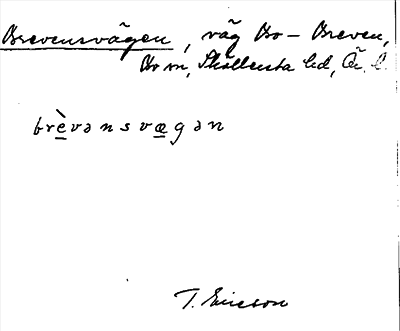 Brevensvägen, väg Bo – Breven,
Bo sn, Skållersta hd, Ör. l.
brèvənsvægən
T. Ericson